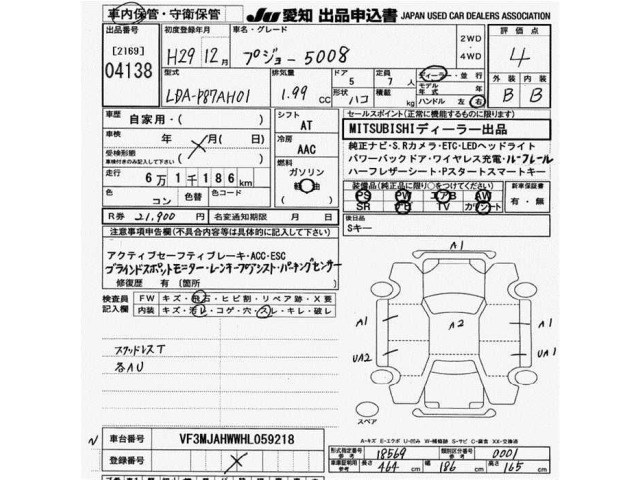 車内保管・守衛保管
JU 愛知 出品申込書 JAPAN USED CAR DEALERS ASSOCIATION
出品番号
[2169]
04138
初度登録年月
H29 年 12 月
車名・グレード
プジョー 5008
2WD
・
4WD
評価点
4
型式
LDA-P87AH01
排気量
1.99 CC
ドア
5
形状 ハコ
定員
7 人
積載 kg
ディーラー・並行
モデル年式 年
ハンドル 左 右
外装 内装
B B
車歴
自家用・( )
車検
年 月
受検形態
車検付きのみ記入して下さい
シフト
AT
冷房
AAC
燃料
ガソリン
軽油
走行
6万1千186 km
色
コン
色替
色コード
R券 21,900 円
名変通知期限 月 日
セールスポイント(正常に機能するものに限ります)
MITSUBISHIディーラー出品
純正ナビ・S.Rカメラ・ETC・LEDヘッドライト
パワーバックドア・ワイヤレス充電・ルーフレール
ハーフレザーシート・Pスタートスマートキー
装備品(純正品に限り○をつけてください)
PS PW エアB AW
SR ナビ TV カワシート
新車保証書
有・無
後日品
Sキー
注意事項申告欄(不具合内容等は具体的に記入して下さい)
アクティブセーフティブレーキ・ACC・ESC
ブラインドスポットモニター・レンキープアシスト・パーキングセンサー
修復歴 有〔箇所 〕
検査員
記入欄
FW キズ・飛石・ヒビ割・リペア跡・X要
内装 キズ・汚レ・コゲ・穴・スレ・キレ・破レ
スタッドレスT
各AU
A1
A1
A2
A1
UA2
UA1
スペア
A-キズ E-エクボ U-凹み W-補修跡 S-サビ C-腐食 XX-交換済
車台番号 VF3MJAHWWHL059218
登録番号
型式指定番号 参考 18569
類別区分番号 参考 0001
車庫証明用 参考 長さ 464 cm 幅 186 cm 高さ 165 cm